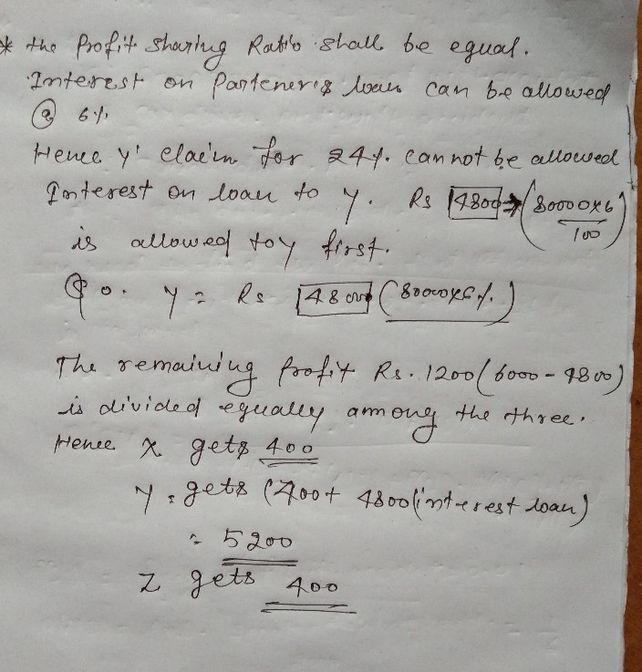 * the Profit sharing Ratio shall be equal.
Interest on Parteneris loan can be allowed
@ 6%
Hence Y' claim for 24%. cannot be allowed
Interest on loan to Y. Rs 4800 → (80000x6/100)
is allowed to y first.
So. Y = Rs 4800 (80000x6%.)
The remaining profit Rs. 1200 (6000 - 4800)
is divided equally among the three.
Hence X gets 400
Y. gets (400+ 4800(interest loan)
= 5200
Z gets 400